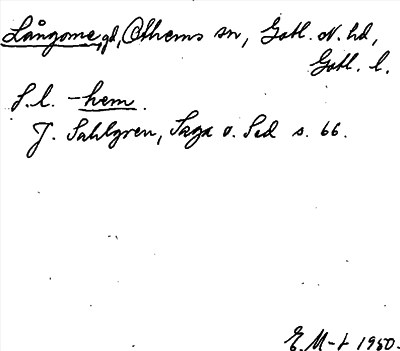 Långome, gd, Othems sn, Gotl. N. hd,
Gotl. l.
S.l. -hem.
J. Sahlgren, Saga o. Sed s. 66.
E. M-t 1950.